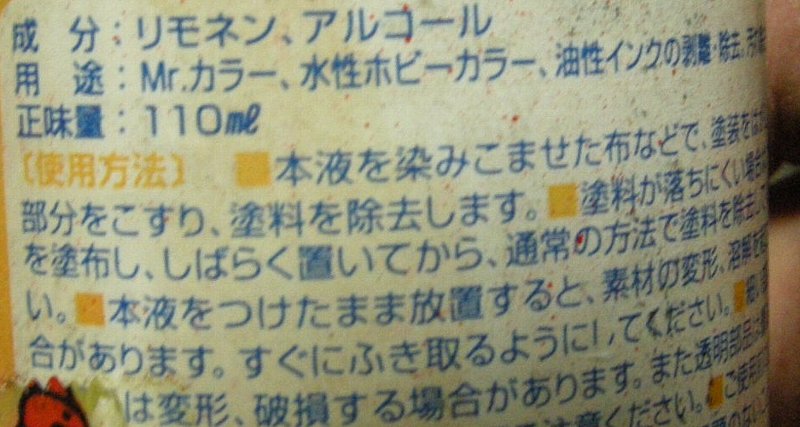 成 分：リモネン、アルコール
用 途：Mr.カラー、水性ホビーカラー、油性インクの剥離・除去、汚
正味量：110㎖
〔使用方法〕 ■本液を染みこませた布などで、塗装を
部分をこすり、塗料を除去します。■塗料が落ちにくい場合
を塗布し、しばらく置いてから、通常の方法で塗料を除去して
い。■本液をつけたまま放置すると、素材の変形、溶解を
合があります。すぐにふき取るようにしてください。■細い
は変形、破損する場合があります。また透明部品
注意ください。■ご使用